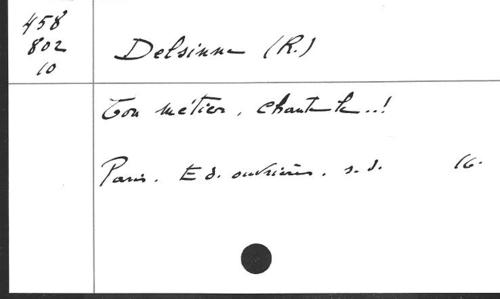 458
802
10
Delsinne (R.)
Ton métier, chante le..!
Paris. Ed. ouvrières. s.d. 16.